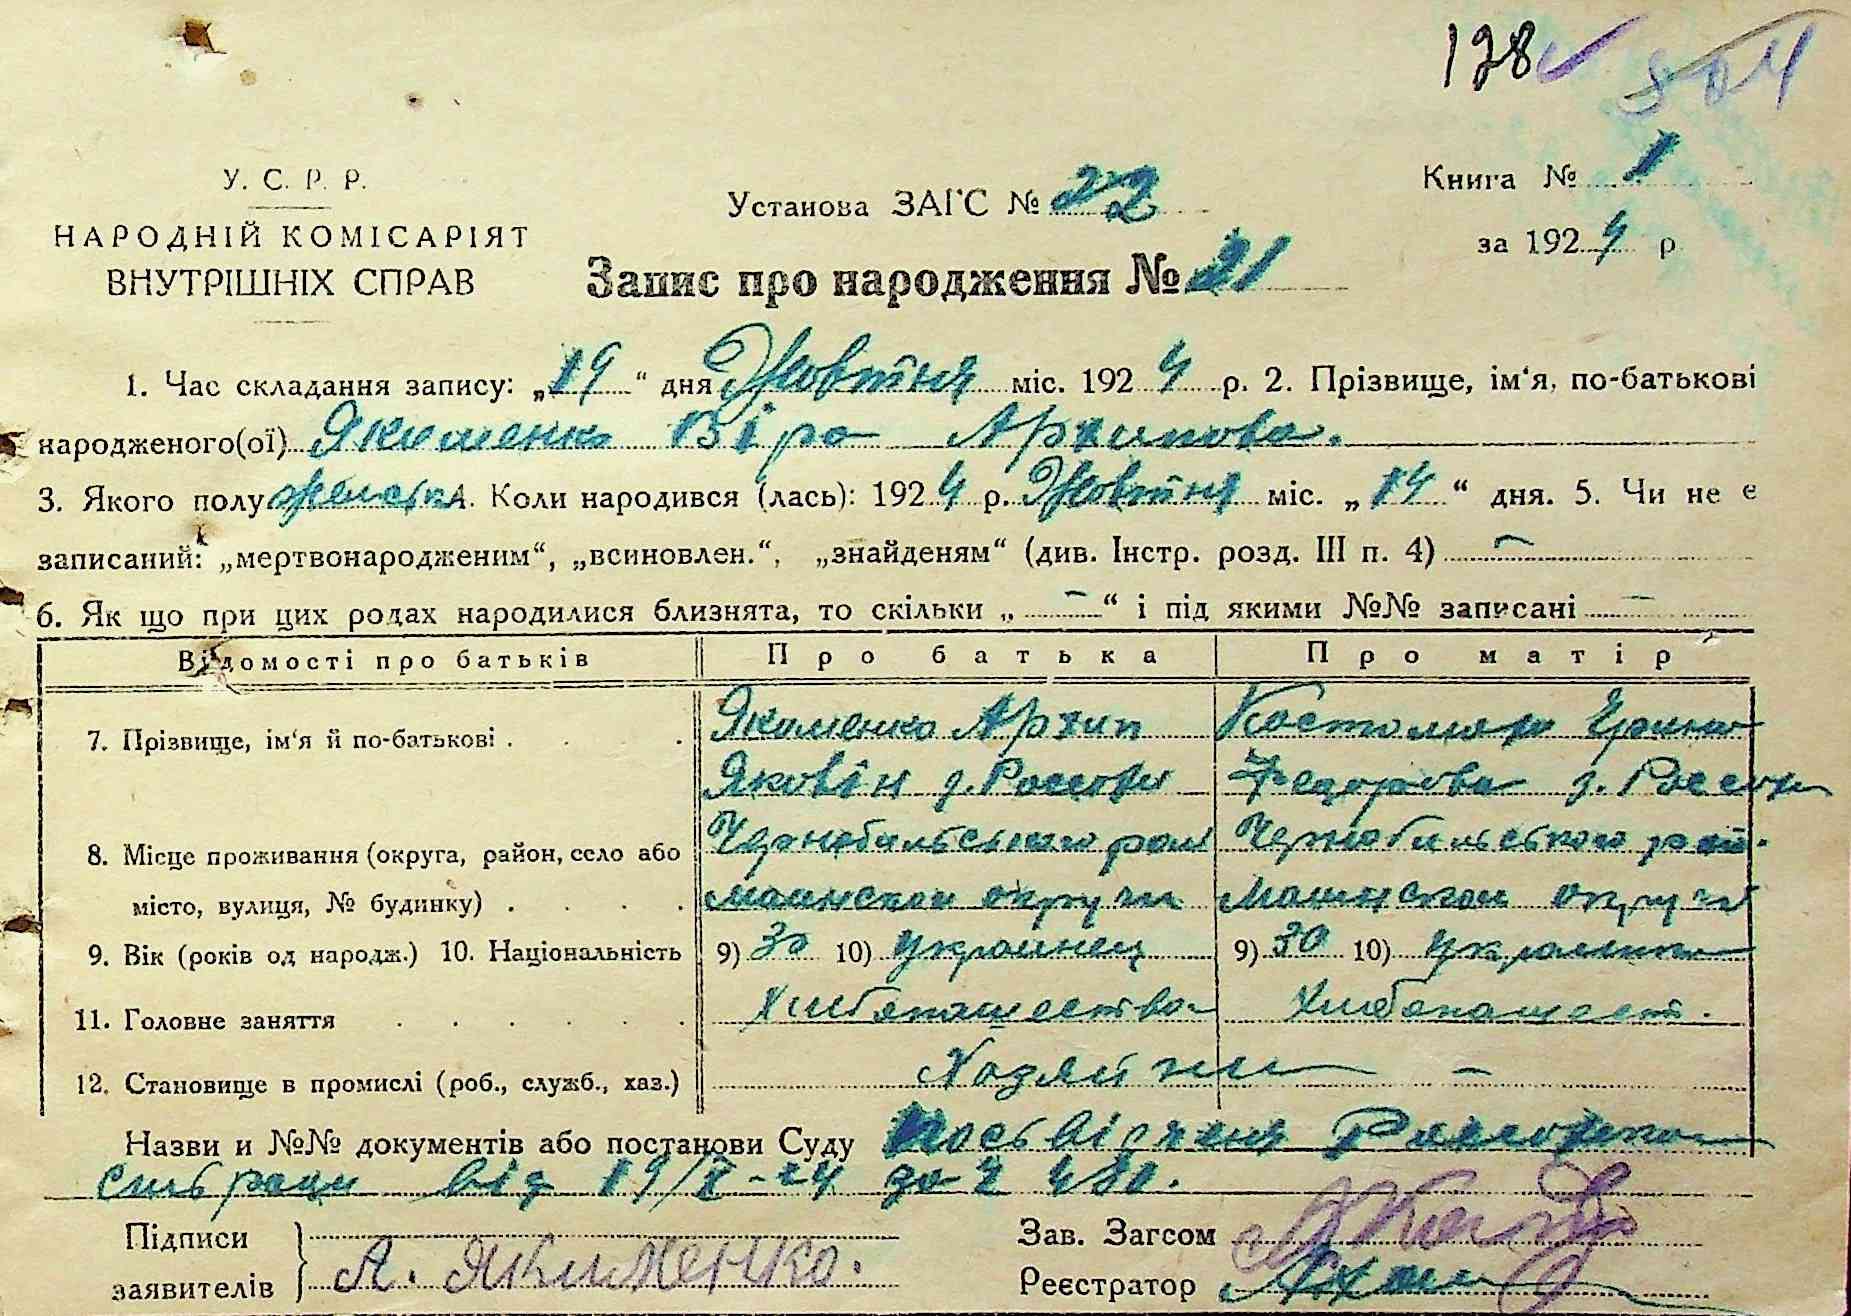 128 804
У. С. Р. Р.
Книга № 1
Установа ЗАГС № 22
НАРОДНІЙ КОМІСАРІЯТ
за 1924 р
ВНУТРІШНІХ СПРАВ
Запис про народження № 21
1. Час складання запису: „19“ дня Жовтня міс. 1924 р. 2. Прізвище, ім‘я, по-батькові
народженого(ої) Якименко Віра Архипова.
3. Якого полу женська 4. Коли народився (лась): 1924 р. Жовтня міс. „14“ дня. 5. Чи не є
записаний: „мертвонародженим“, „всиновлен.“, „знайденям“ (див. Інстр. розд. III п. 4) —
6. Як що при цих родах народилися близнята, то скільки „ — “ і під якими №№ записані —
Відомості про батьків Про батька Про матір
7. Прізвище, ім‘я й по-батькові . . . Якименко Архип Костомаха Ерина
Яковін д. Россохи Федорова д. Россохи
8. Місце проживання (округа, район, село або Чернобильського рай Чернобильского рай.
місто, вулиця, № будинку) . . . . округи округи
9. Вік (років од народж.) 10. Національність 9) 30 10) Украинец 9) 30 10) украинка
11. Головне заняття . . . . . . Хлибопашество Хлибопашест.
12. Становище в промислі (роб., служб., хаз.) Хозяйни —
Назви и №№ документів або постанови Суду Посвідченя
сільради від 19/X-24 за № 430.
Підписи Зав. Загсом
заявителів А. Якименко. Реєстратор